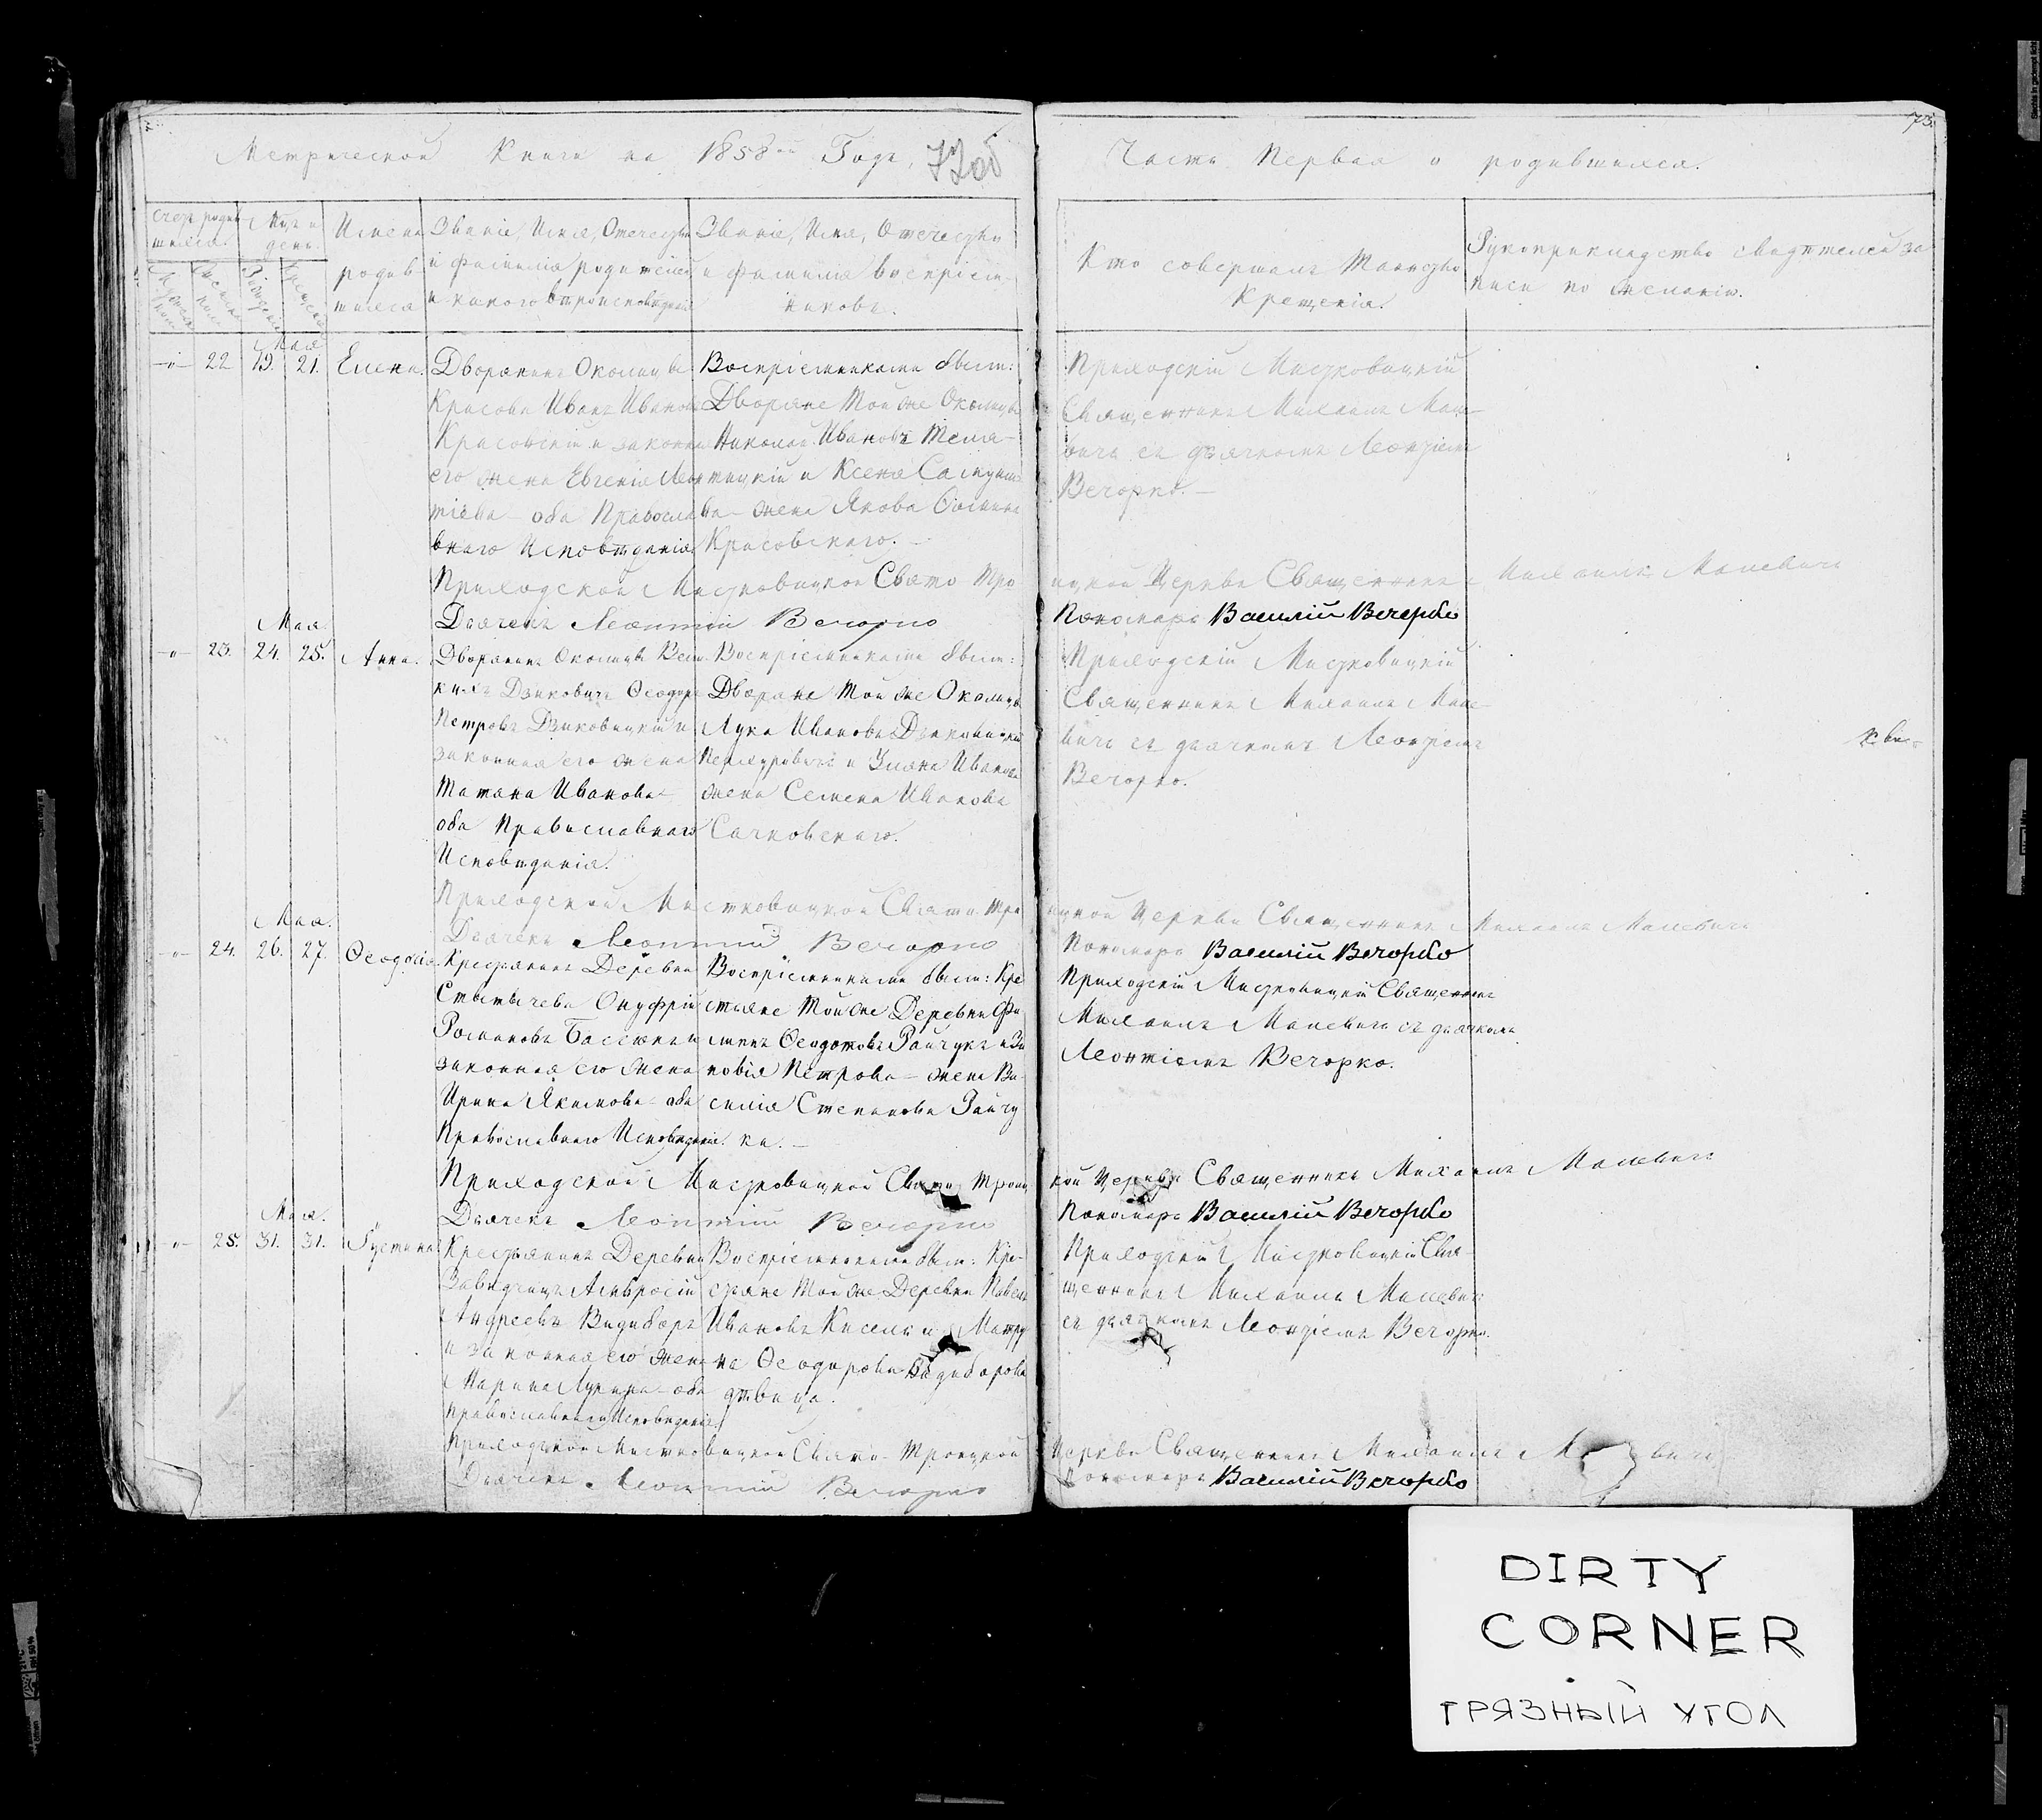 Метрической Книги на 1858ый Годъ,
72об
Часть Первая о родившихся.
73.
Счетъ родив
шихся.
Мцъ и
день.
Имена
родив
шихся
Званіе, Имя, Отечество
и фамилія родителей
и какого вѣроисповѣданія
Званіе, Имя, Отечество
и фамилія воспріем-
никовъ.
Кто совершалъ Таинство
Крещенія.
Рукоприкладство свидѣтелей за
писи по желанію.
Мая
22 19. 21. Елена.
Дворянинъ Околицы
Красова Иванъ Ивановъ
Красовскій и законная
его жена Евгенія Леон
тіева – оба Правосла
внаго Исповѣданія
Воспріемниками были:
Дворяне Той же Околицы
Николай Ивановъ Теля-
тицкій и Ксенія
ва – жена Якова
Красовскаго. –
Приходскій Мистковицкій
Священникъ Михаилъ Мале-
вичъ съ дьячкомъ Леонтіемъ
Вечорко. –
Приходской Мистковицкой Свято Тро
ицкой Церкви Священникъ Михаилъ Малевичъ
Дьячекъ Леонтий Вечорко
Пономарь Василій Вечорко
Мая.
23. 24. 25. Анна.
Дворянинъ Околицы Вели
кихъ Дзиковичъ Ѳеодоръ
Петровъ Дзиковицкій и
законная его жена
Татіана Иванова –
оба Православнаго
Исповѣданія.
Воспріемниками были:
Дворяне Той же Околицы
Лука Ивановъ Дзиковицкій
и Уліяна Иванова
жена Семена Иванова
Сачковскаго.
Приходскій Мистковицкій
Священникъ Михаилъ Мале-
вичъ съ дьячкомъ Леонтіемъ
Вечорко.
Приходской Мистковицкой Свято Тро
ицкой Церкви Священникъ Михаилъ Малевичъ
Дьячекъ Леонтий Вечорко
Пономарь Василій Вечорко
Мая.
24. 26. 27. Ѳеодосія
Крестьянинъ Деревни
Стытычева Онуфрій
Романовъ и
законная его жена
Ирина Якимова – оба
Православнаго Исповѣданія.
Воспріемниками были: Кре
стьяне Той же Деревни Фи
липъ Ѳеодотовъ Райчукъ и Зи
новія Петрова – жена Ва
силія Степанова Райчу
ка. –
Приходскій Мистковицкій Священникъ
Михаилъ Малевичъ съ дьячкомъ
Леонтіемъ Вечорко.
Приходской Мистковицкой Свято Троиц
кой Церкви Священникъ Михаилъ Малевичъ
Дьячекъ Леонтий Вечорко
Пономарь Василій Вечорко
Мая.
25. 31. 31. Іустина
Крестьянинъ Деревни
Завидчицъ Амвросій
Андреевъ Видиборъ
и законная его жена
Марина – оба
Православнаго Исповѣданія.
Воспріемниками были: Кре-
стьяне Той же Деревни Павелъ
Ивановъ Кисель и Матру
на Ѳеодорова Видиборова
дѣвица.
Приходскій Мистковицкій Свя-
щенникъ Михаилъ Малевичъ
съ дьячкомъ Леонтіемъ Вечорко.
Приходской Мистковицкой Свято-Троицкой
Церкви Священникъ Михаилъ
Дьячекъ Леонтий Вечорко
Пономарь Василій Вечорко
DIRTY
CORNER
ГРЯЗНЫЙ УГОЛ